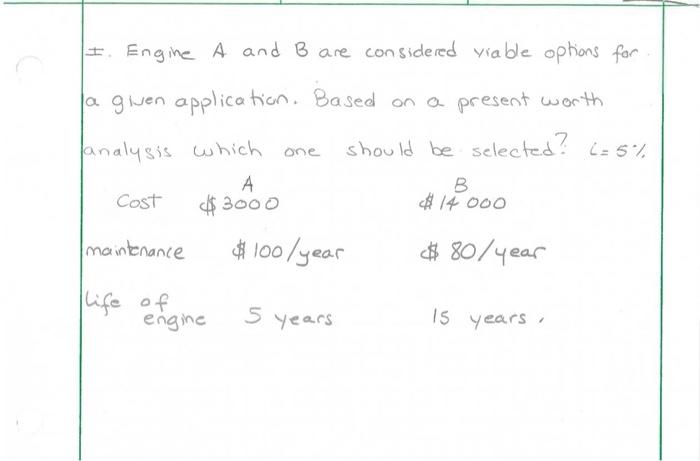 I. Engine A and B are considered viable options for
a given application. Based on a present worth
analysis which one should be selected? i=5%
A B
Cost $3000 $14 000
maintenance $100/year $80/year
life of
engine 5 years 15 years.